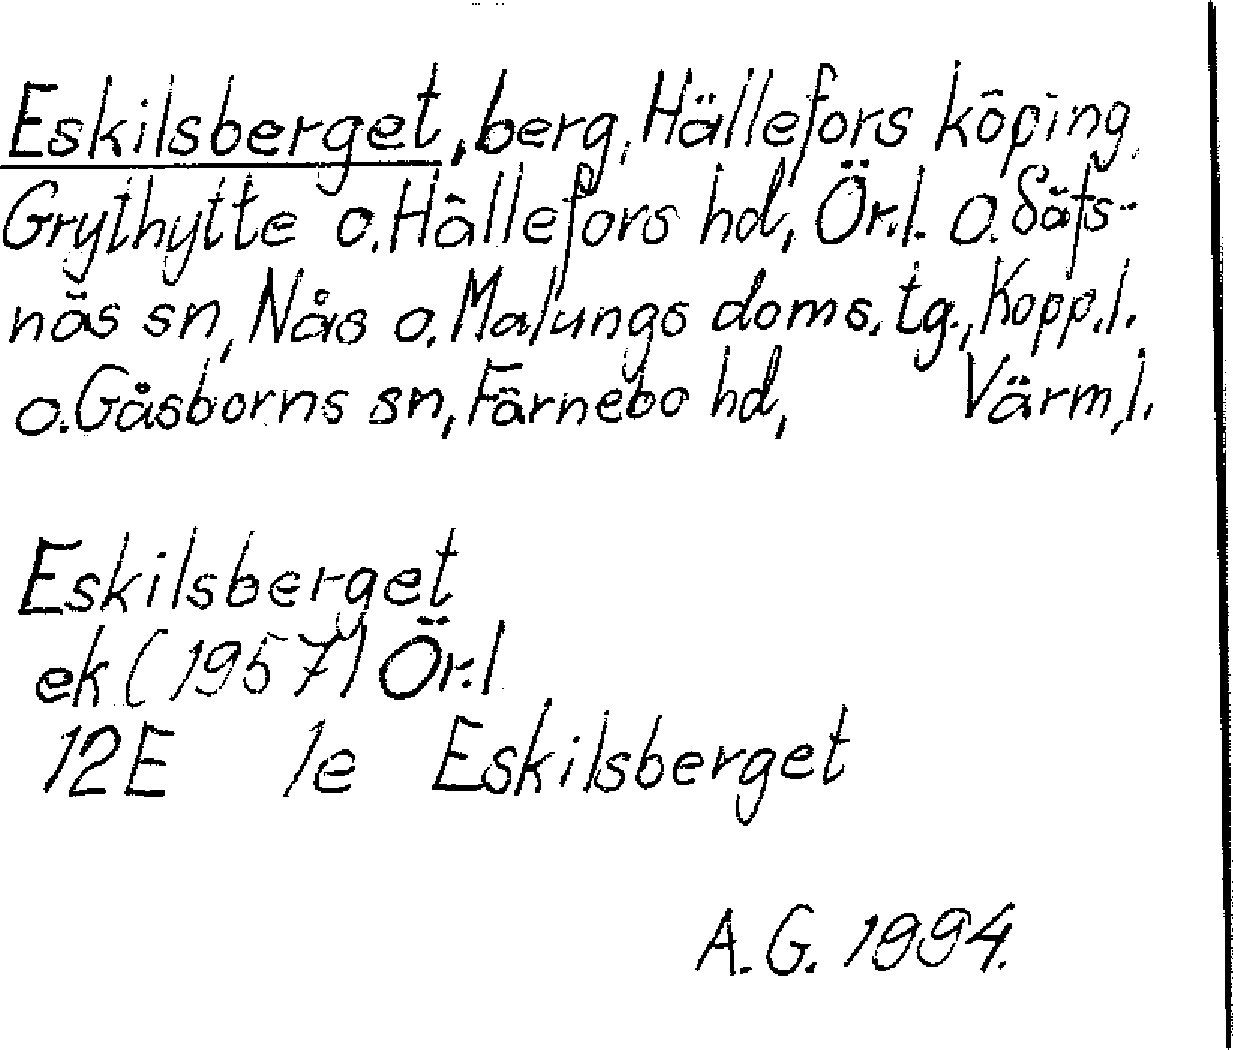 Eskilsberget, berg, Hällefors köping,
Grythytte o. Hällefors hd, Ör.l. o. Säfs-
näs sn, Nås o. Malungs doms. tg., Kopp.l.
o. Gåsborns sn, Färnebo hd, Värm,l.
Eskilsberget
ek (1957) Ör.l
12E 1e Eskilsberget
A.G. 1994.